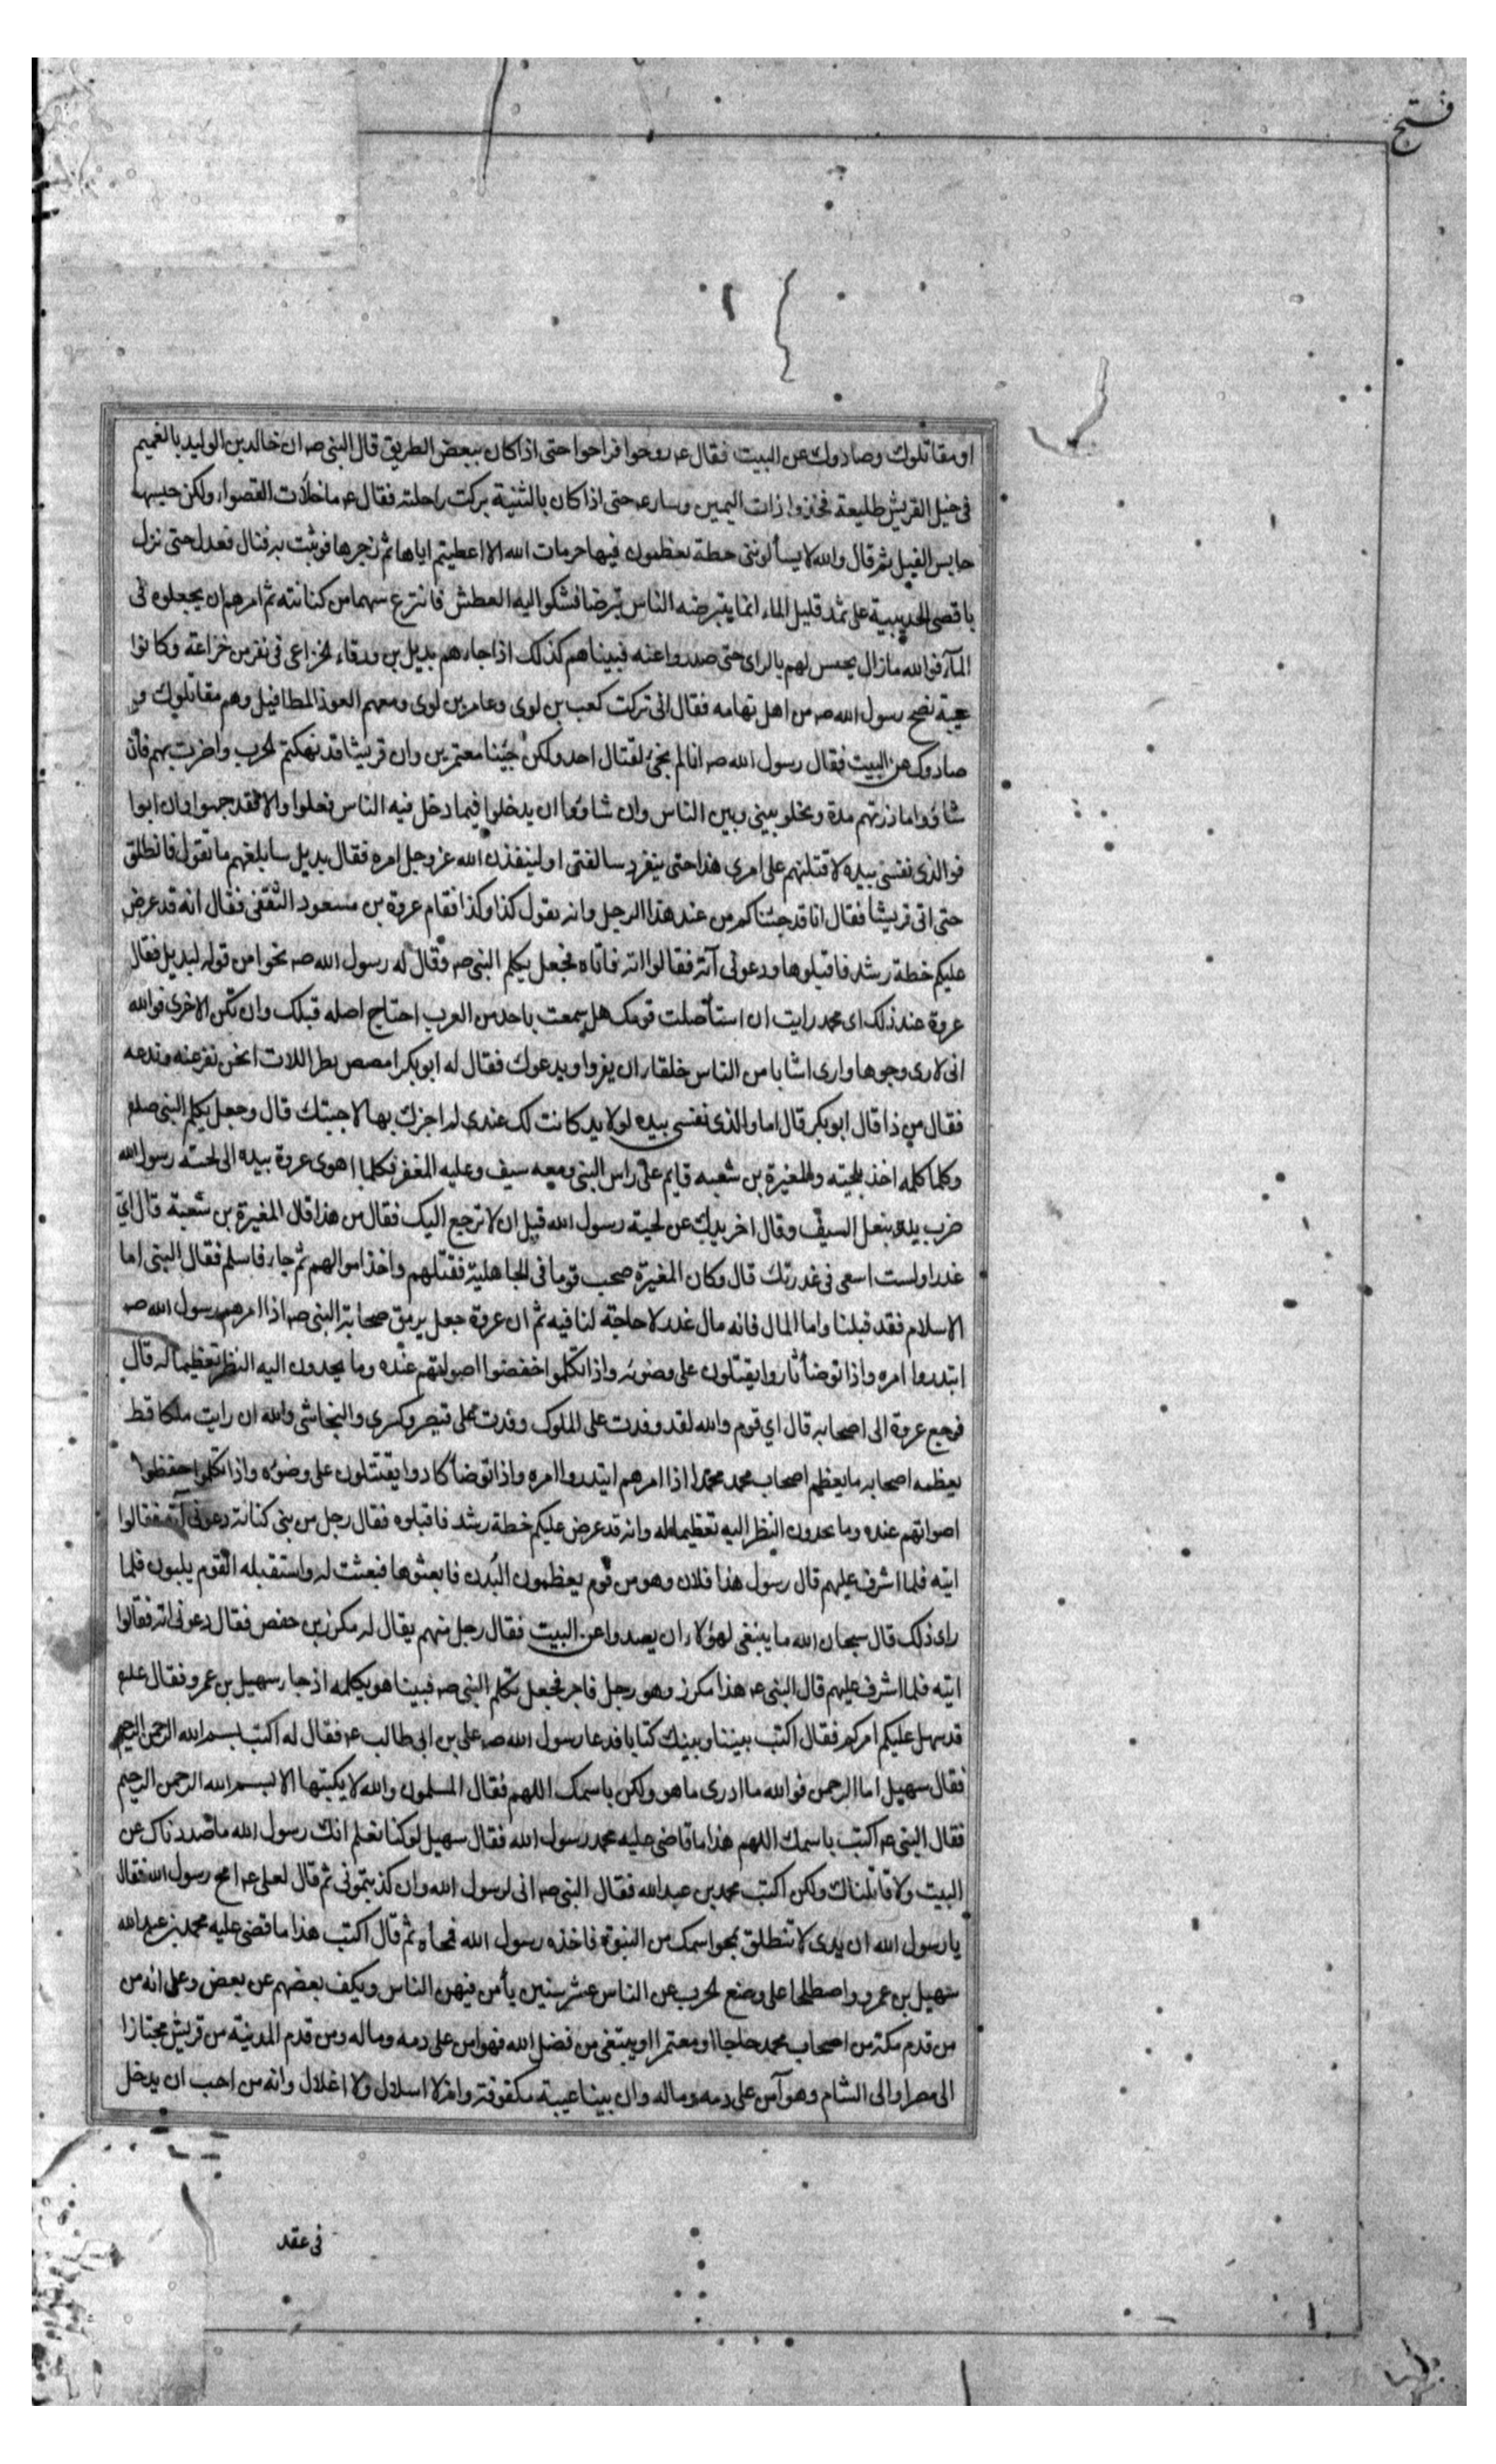 فتح
او مقاتلوك وصادوك عن البيت فقال عم روحوا فراحوا حتى اذا كان ببعض الطريق قال النبى صم ان خالد بن الوليد بالغميم
فى خيل القريش طليعة فخذوا ذات اليمين وسار عم حتى اذا كان بالثنية بركت راحلته فقال عم ما خلأت القصواء ولكن حبسها
حابس الفيل ثم قال والله لا يسألوننى خطة يعظمون فيها حرمات الله الا اعطيتم اياها ثم زجرها فوثبت به فقال فعدل حتى نزل
باقصى الحديبية على ثمد قليل الماء انما يتبرضه الناس تبرضا فشكوا اليه العطش فانتزع سهما من كنانته ثم امرهم ان يجعلوه فى
المآء فوالله مازال يجيس لهم بالراى حتى صدروا عنه فبيناهم كذلك اذا جاءهم بديل بن ورقاء الخزاعى فى نفر من خزاعة وكانوا
عيبة نصح رسول الله صم من اهل تهامه فقال انى تركت كعب بن لوى وعامر بن لوى ومعهم العوذ المطافيل وهم مقاتلوك و
صادوك عن البيت فقال رسول الله صم انا لم نجئ لقتال احد ولكن جئنا معتمرين وان قريشا قد نهكتم الحرب واضرت بهم فأن
شاؤا ماددتهم مدة ويخلو بينى وبين الناس وان شاؤا ان يدخلوا فيما دخل فيه الناس فعلوا والا فقد جموا وان ابوا
فوالذى نفسى بيده لاقتلنهم على امرى هذا حتى ينفرد سالفتى او لينفذن الله عز وجل امره فقال بديل سابلغهم ما تقول فانطلق
حتى اتى قريشا فقال انا قد جئناكم من عند هذا الرجل وانه يقول كذا وكذا فقام عروة بن مسعود الثقفى فقال انه قد عرض
عليكم خطة رشد فاقبلوها ودعونى آته فقالوا ائته فاتاه فجعل يكلم النبى صم فقال له رسول الله صم نحوا من قوله لبديل فقال
عروة عند ذلك اى محمد رايت ان استأصلت قومك هل سمعت باحد من العرب اجتاح اصله قبلك وان تكن الاخرى فوالله
انى لارى وجوها وارى اشابا من الناس خلقاء ان يفروا ويدعوك فقال له ابوبكر امصص بظر اللات انحن نفر عنه وندعه
فقال من ذا قال ابو بكر قال اما والذى نفسى بيده لولا يد كانت لك عندى لم اجزك بها لاجبتك قال وجعل يكلم النبى صلعم
وكلما كلمه اخذ بلحيته والمغيرة بن شعبه قايم على راس النبى ومعه سيف وعليه المغفر فكلما اهوى عروة بيده الى لحية رسول الله
ضرب يده بنعل السيف وقال اخر يدك عن لحية رسول الله قبل ان لا ترجع اليك فقال من هذا قال المغيرة بن شعبة قال اى
غدر اولست اسعى فى غدرتك قال وكان المغيرة صحب قوما فى الجاهلية فقتلهم واخذ اموالهم ثم جاء فاسلم فقال النبى اما
الاسلام فقد قبلنا واما المال فانه مال غدر لا حاجة لنا فيه ثم ان عروة جعل يرمق صحابة النبى صم اذا امرهم رسول الله صم
ابتدروا امره واذا توضأ ثاروا يقتتلون على وضوئه واذا تكلموا اخفضوا اصواتهم عنده وما يحدون اليه النظر تعظيما له قال
فرجع عروة الى اصحابه قال اي قوم والله لقد وفدت على الملوك وفدت على قيصر وكسرى والنجاشى والله ان رايت ملكا قط
يعظمه اصحابه ما يعظم اصحاب محمد محمدا اذا امرهم ابتدروا امره واذا توضأ كادوا يقتتلون على وضوئه واذا تكلموا خفضوا
اصواتهم عنده وما يحدون النظر اليه تعظيما له وانه قد عرض عليكم خطة رشد فاقبلوه فقال رجل من بنى كنانة دعونى آته فقالوا
ايته فلما اشرف عليهم قال رسول هذا فلان وهو من قوم يعظمون البدن فابعثوها فبعثت له واستقبله القوم يلبون فلما
راى ذلك قال سبحان الله ما ينبغى لهؤلاء ان يصدوا عن البيت فقال رجل منهم يقال له مكرز بن حفص فقال دعونى اته فقالوا
ايته فلما اشرف عليهم قال النبى عم هذا مكرز وهو رجل فاجر فجعل تكلم النبى صم فبينا هو يكلمه اذ جاء سهيل بن عمرو فقال علم
قد سهل عليكم امركم فقال اكتب بيننا وبينك كتابا فدعا رسول الله صم على بن ابى طالب عم فقال له اكتب بسم الله الرحمن الرحيم
فقال سهيل اما الرحمن فوالله ما ادرى ما هو ولكن باسمك اللهم فقال المسلمون والله لا يكتبها الا بسم الله الرحمن الرحيم
فقال النبى عم اكتب باسمك اللهم هذا ما قاضى عليه محمد رسول الله فقال سهيل لو كنا نعلم انك رسول الله ما صددناك عن
البيت ولا قاتلناك ولكن اكتب محمد بن عبد الله فقال النبى صم انى لرسول الله وان كذبتمونى ثم قال لعلى عم امح رسول الله فقال
يا رسول الله ان يدى لا تنطلق بمحو اسمك من النبوة فاخذه رسول الله فمحاه ثم قال اكتب هذا ما قضى عليه محمد بن عبد الله
سهيل بن عمرو واصطلحا على وضع الحرب عن الناس عشر سنين يأمن فيهن الناس ويكف بعضهم عن بعض وعلى انه من
من قدم مكة من اصحاب محمد حاجا او معتمرا او يبتغى من فضل الله فهو امن على دمه وماله ومن قدم المدينة من قريش مجتازا
الى مصر او الى الشام وهو آمن على دمه وماله وان بينا عيبة مكفوفة وانه لا اسلال ولا اغلال وانه من احب ان يدخل
فى عقد